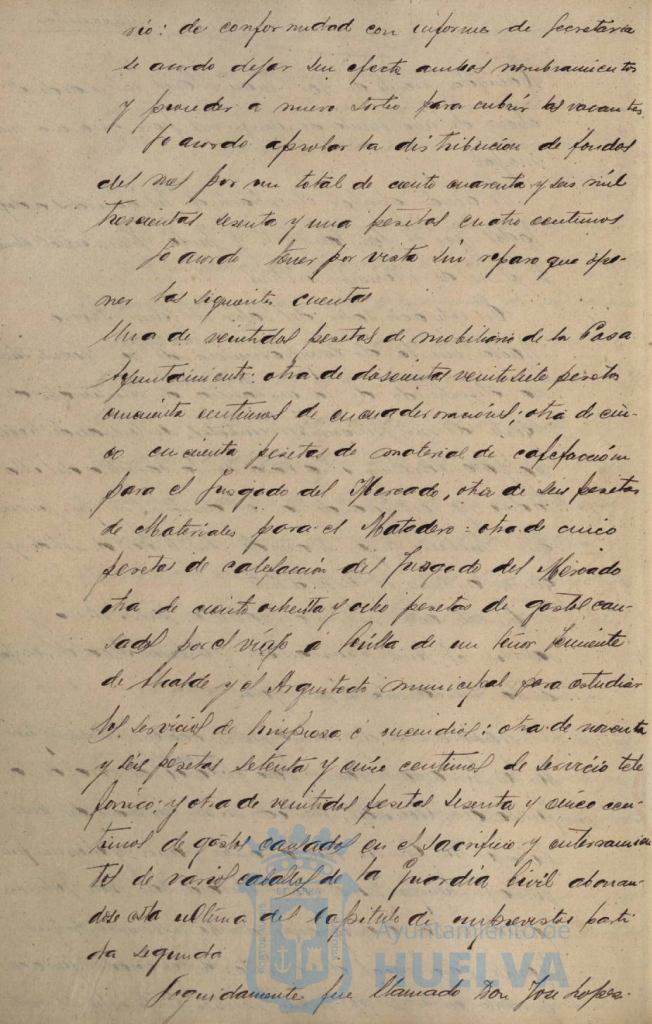 rio: de conformidad con informe de Secretaria
se acordo dejar sin efecto ambos nombramientos
y proceder a nuevo sorteo para cubrir las vacantes
Se acordo aprobar la distribucion de fondos
del mes por un total de ciento cuarenta y seis mil
trescientas sesenta y una pesetas cuatro centimos
Se acordo tener por vista sin reparo que opo-
ner las siguientes cuentas
Una de veintidos pesetas de mobiliario de la Casa
Ayuntamiento: otra de doscientas veintisiete pesetas
cincuenta centimos de encuadernaciones; otra de cin-
co cincuenta pesetas de material de calefaccion
para el Juzgado del Mercado, otra de seis pesetas
de Materiales para el Matadero: otra de cinco
pesetas de calefaccion del Juzgado del Mercado
otra de ciento ochenta y ocho pesetas de gastos cau-
sados por el viaje a Sevilla de un señor Teniente
de Alcalde y el Arquitecto municipal para estudiar
los servicios de limpieza e incendios: otra de noventa
y seis pesetas setenta y cinco centimos de servicio tele
fonico; y otra de veintidos pesetas sesenta y cinco cen-
timos de gastos causados en el sacrificio y enterramien
tos de varios caballos de la Guardia Civil abonan-
dose esta ultima del Capitulo de imprevistos parti
da segunda
Seguidamente fue llamado Don Jose Lopez
Ayuntamiento de
HUELVA